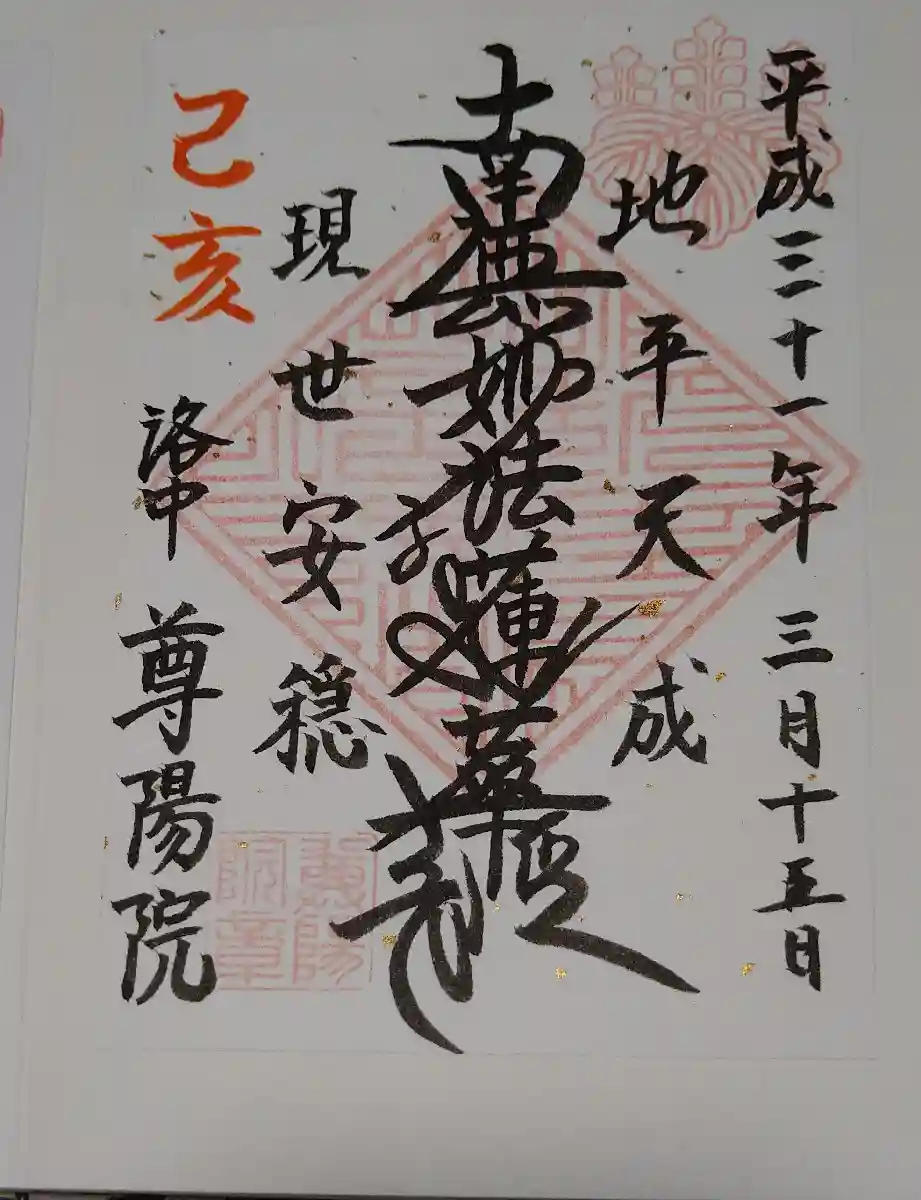 平成三十一年三月十五日
地平天成
南無妙法蓮華経
現世安穏
己亥
洛中 尊陽院